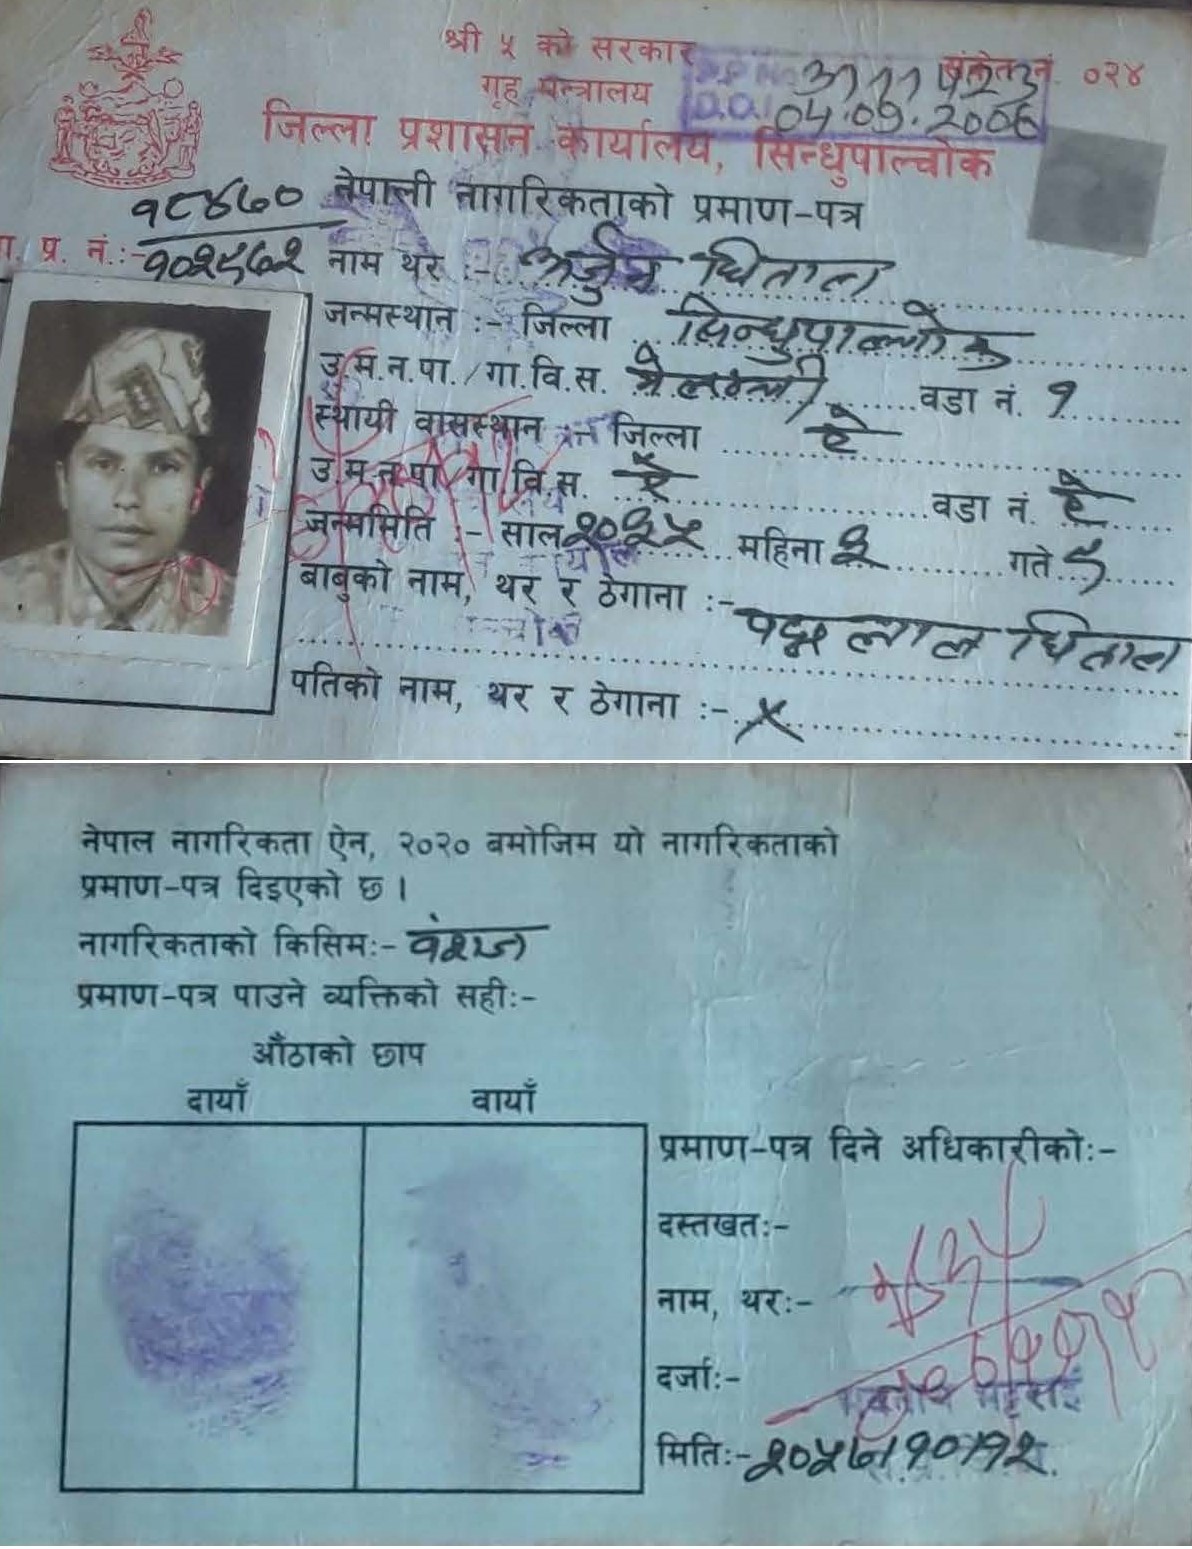 श्री ५ को सरकार
गृह मन्त्रालय
संकेत नं. ०२४
04.09.2006
जिल्ला प्रशासन कार्यालय, सिन्धुपाल्चोक
नेपाली नागरिकताको प्रमाण-पत्र
१८४७०
प्र. नं.:-
नाम थर :- अर्जुन धिताल
जन्मस्थान :- जिल्ला सिन्धुपाल्चोक
उ.म.न.पा./गा.वि.स. मेलम्ची वडा नं. १
स्थायी वासस्थान जिल्ला ऐ
उ.म.न.पा. गा.वि.स. ऐ वडा नं. ऐ
जन्ममिति :- साल २०३५ महिना २ गते ५
बाबुको नाम, थर र ठेगाना :-
पद्म लाल धिताल
पतिको नाम, थर र ठेगाना :- x
नेपाल नागरिकता ऐन, २०२० बमोजिम यो नागरिकताको
प्रमाण-पत्र दिइएको छ ।
नागरिकताको किसिम:- वंशज
प्रमाण-पत्र पाउने व्यक्तिको सही:-
औंठाको छाप
दायाँ बायाँ
प्रमाण-पत्र दिने अधिकारीको:-
दस्तखत:-
नाम, थर:-
दर्जा:-
मिति:- २०५७।१०।१२